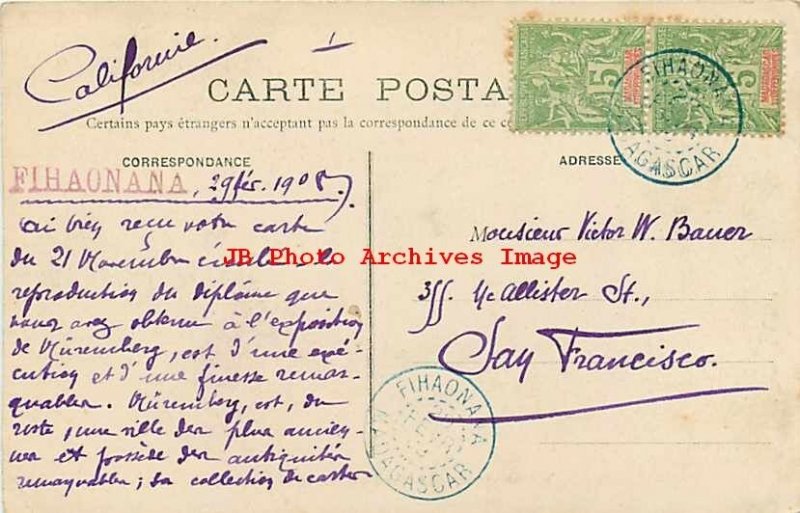 Californie.
1
CARTE POSTA
Certains pays étrangers n'acceptent pas la correspondance de ce c
CORRESPONDANCE
ADRESSE
FIHAONANA, 29 fév. 1908.
ai bien reçu votre carte
du 21 Novembre la
reproduction du diplôme que
vous avez obtenu à l'exposition
de Nüremberg, est d'une exé-
cution et d'une finesse remar-
quables. Nüremberg, est, du
reste, une ville des plus ancien-
nes et possède des antiquités
remarquables; sa collection de cartes
Monsieur Victor W. Bauer
355 Mc Allister St.,
San Francisco.
5
5
FIHAONANA
MADAGASCAR
FIHAONANA
MADAGASCAR
JB Photo Archives Image